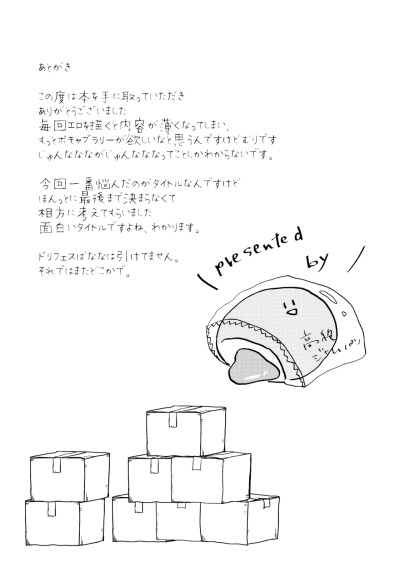 あとがき
この度は本を手に取っていただき
ありがとうございました
毎回エロを描くと内容が薄くなってしまい、
もっとボキャブラリーが欲しいなと思うんですけどむりです
じゅんなななながじゅんなななってことしかわからないです。
今回一番悩んだのがタイトルなんですけど
ほんっとに最後まで決まらなくて
相方に考えてもらいました
面白いタイトルですよね、わかります。
ドリフェスばななは引けてません。
それではまたどこかで。
\ presented
by /
高級